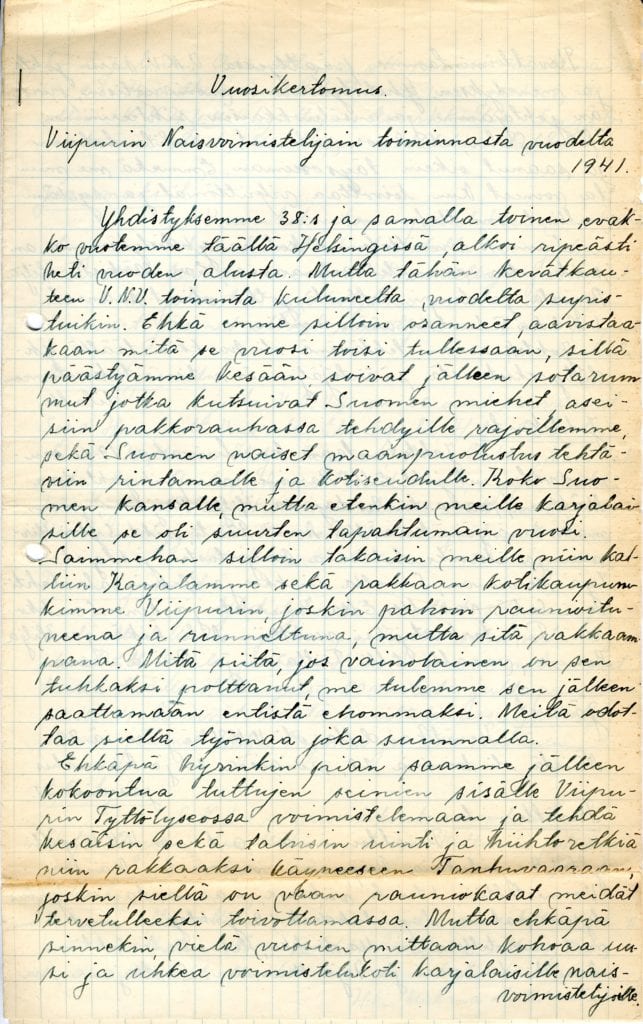 Vuosikertomus.
Viipurin Naisvoimistelijain toiminnasta vuodelta
1941.
Yhdistyksemme 38:s ja samalla toinen evak-
ko vuotemme täältä Helsingissä, alkoi ripeästi
heti vuoden alusta. Mutta tähän kevätkau-
teen V.N.V. toiminta kuluneelta vuodelta supis-
tuikin. Ehkä emme silloin osanneet aavistaa-
kaan mitä se vuosi toisi tullessaan, sillä
päästyämme kesään soivat jälleen sotarum
mut jotka kutsuivat Suomen miehet asei-
siin pakkorauhassa tehdyille rajoillemme,
sekä Suomen naiset maanpuolustus tehtä-
viin rintamalle ja kotiseudulle. Koko Suo-
men kansalle, mutta etenkin meille karjalai
sille se oli suurten tapahtumain vuosi.
Saimmehan silloin takaisin meille niin kal-
liin Karjalamme sekä rakkaan kotikaupun-
kimme Viipurin, joskin pahoin raunioitu-
neena ja runneltuna, mutta sitä rakkaam
pana. Mitä siitä, jos vainolainen on sen
tuhkaksi polttanut, me tulemme sen jälleen
saattamaan entistä ehommaksi. Meitä odot-
taa siellä työmaa joka suunnalla.
Ehkäpä hyvinkin pian saamme jälleen
kokoontua tuttujen seinien sisälle Viipu-
rin Tyttölyseossa voimistelemaan ja tehdä
kesäisin sekä talvisin uinti ja hiihtoretkiä
niin rakkaaksi käyneeseen Tanhuvaaraan,
joskin sieltä on vaan rauniokasat meidät
tervetulleeksi toivottamassa. Mutta ehkäpä
sinnekin vielä vuosien mittaan kohoaa uu-
si ja uhkea voimistelukoti karjalaisille nais-
voimistelijoille.